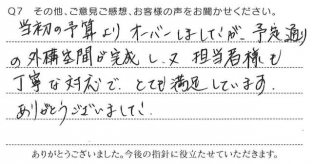 Q7 その他、ご意見ご感想、お客様の声をお聞かせください。
当初の予算より オーバーしましたが、予定通り
の外構空間が完成し、又 担当者様も
丁寧な対応で、とても満足しています。
ありがとうございました。
ありがとうございました。今後の指針に役立たせていただきます。